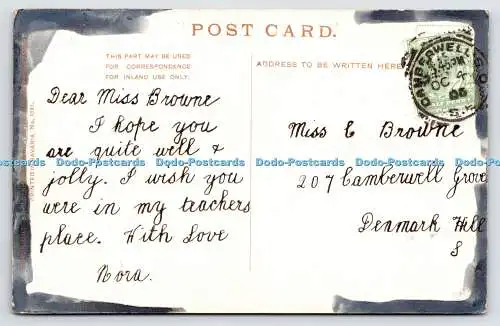 POST CARD.
THIS PART MAY BE USED
FOR CORRESPONDENCE
FOR INLAND USE ONLY.
Dear Miss Browne
I hope you
are quite well &
jolly. I wish you
were in my teachers
place. With Love
Nora.
ADDRESS TO BE WRITTEN HERE
Miss E Browne
207 Camberwell Grove
Denmark Hill
S
CAMBERWELL S.O.
OC 4
S.E.
Dodo-Postcards Dodo-Postcards Dodo-Postcards Dodo-Postcards Dodo-Postcards